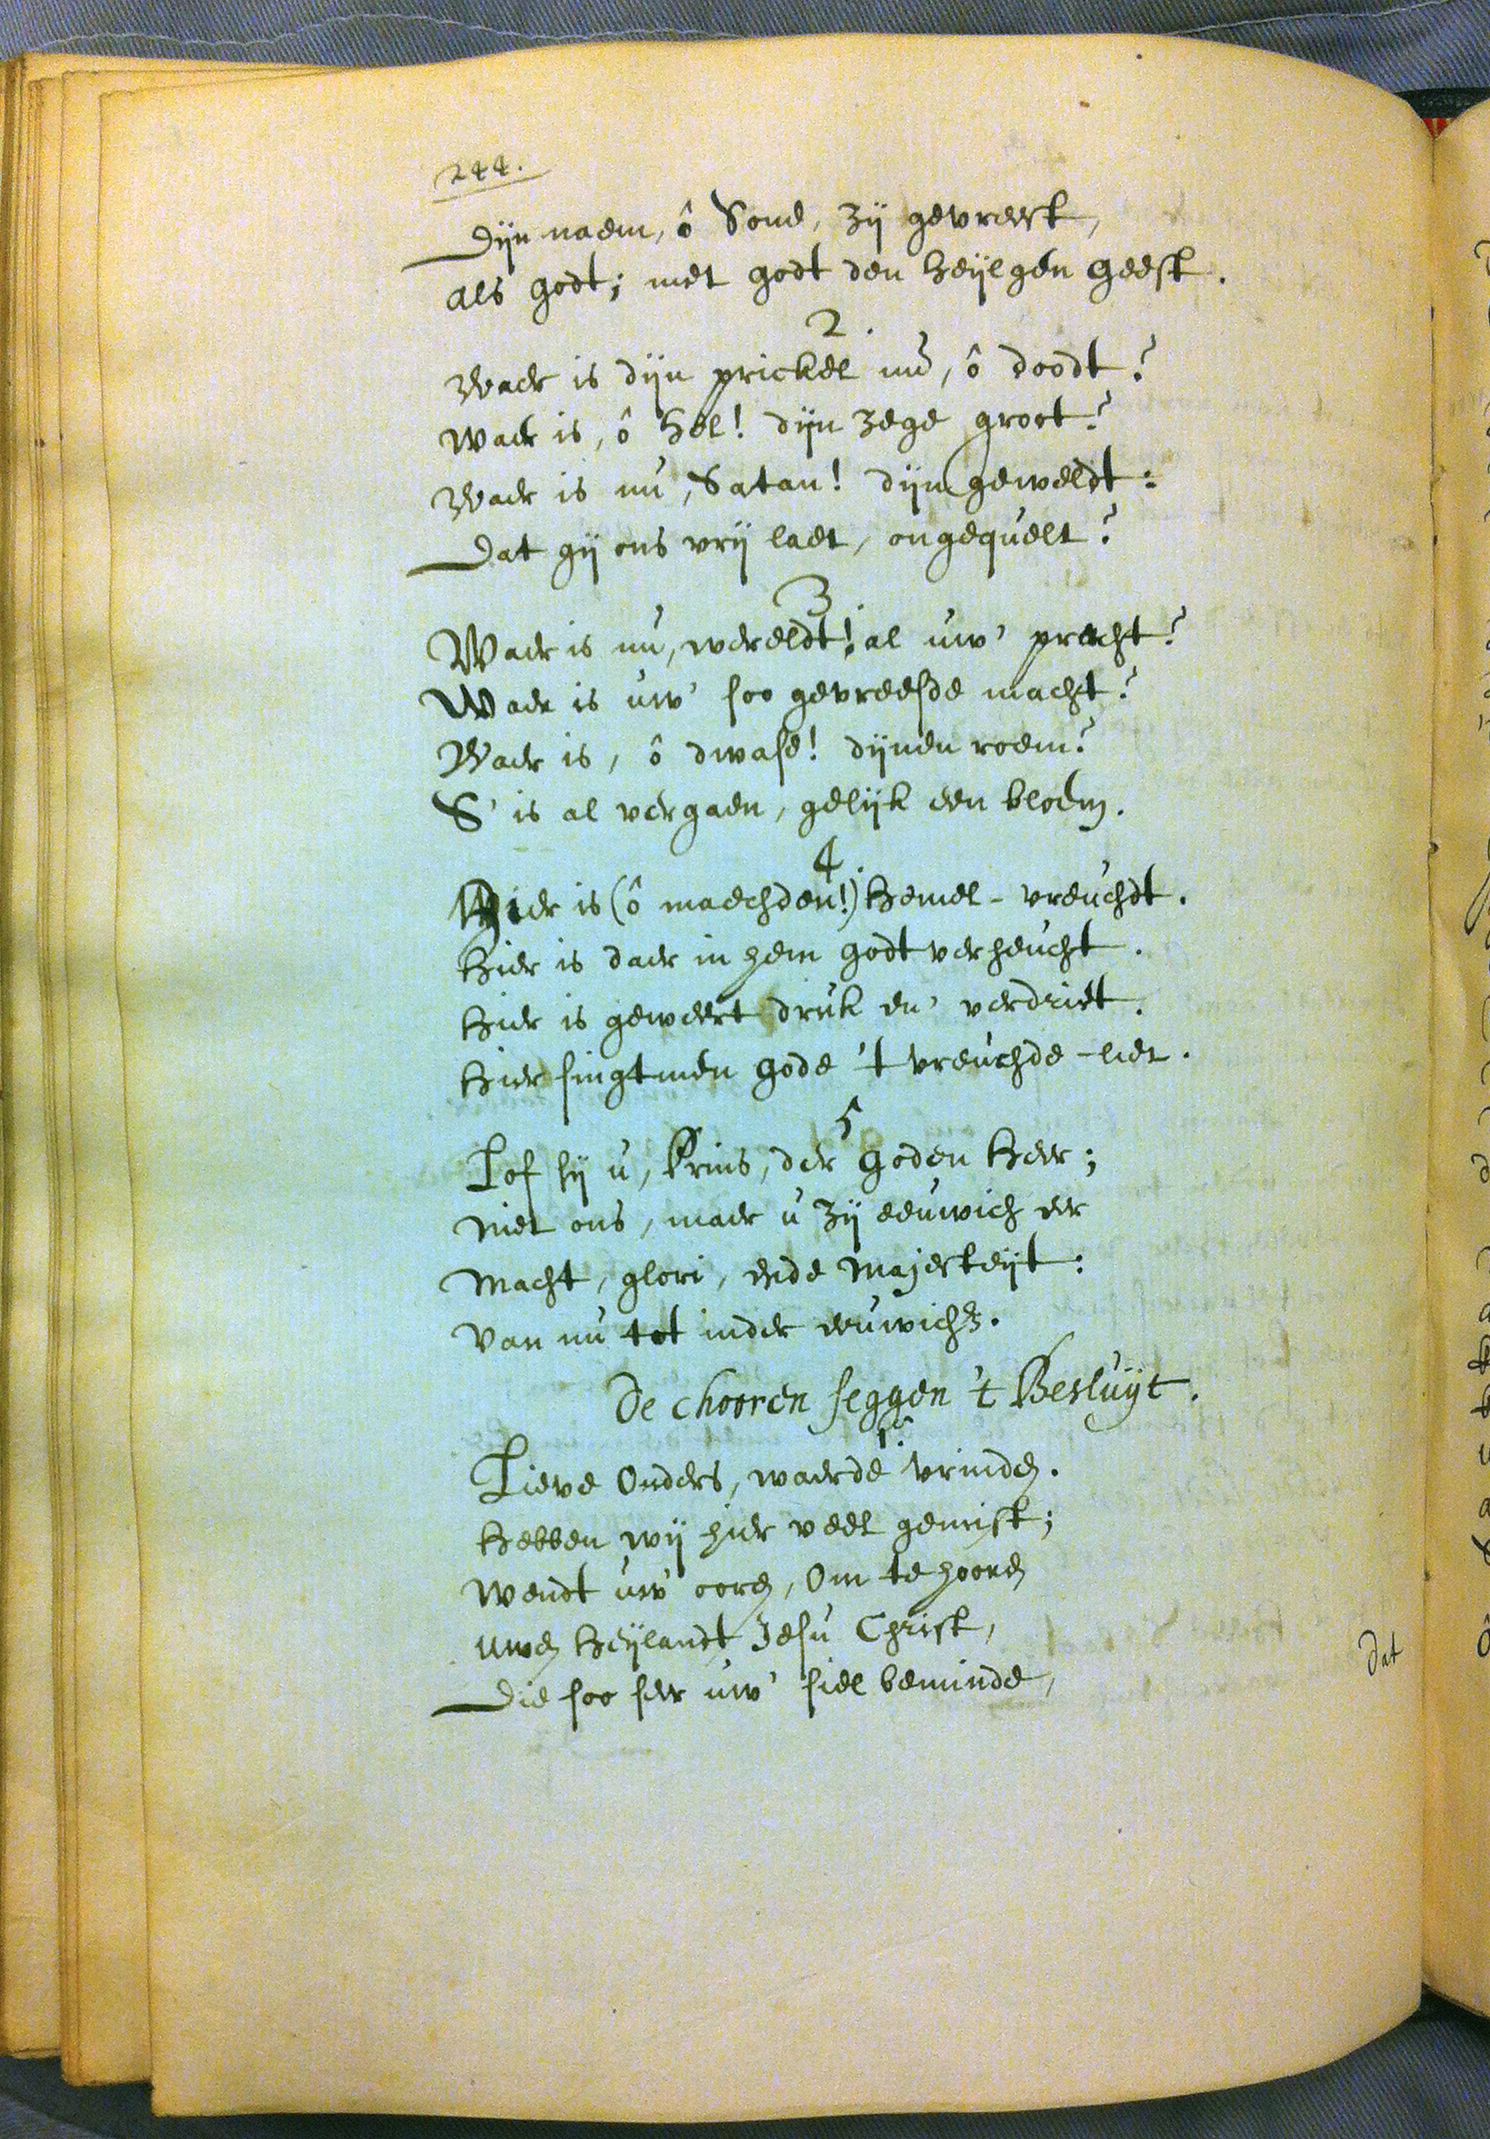 244.
Dijn naem, ô Sone, zij gevreest,
als godt; met godt den heijlgen geest.
2.
Waer is dijn prickel nu, ô doodt?
waer is, ô hel! dijn zege groot?
Waer is nu, Satan! dijn geweldt:
Dat gij ons vrij laet, ongequelt?
3.
Waer is nu, wereldt! al uw' pracht?
Waer is uw' soo gevreesde macht?
Waer is, ô dwase! dijnen roem?
S' is al vergaen, gelijk een bloem.
4.
Hier is (ô maechden!) hemel-vreuchdt.
hier is daer in hem godt verheucht.
hier is geweert druk en' verdriet.
hier singtmen gode 't vreuchde-liet.
5
Lof sij u, Prins, der goden heer;
niet ons, maer u zij eeuwich eer
macht, glori, ende majesteijt:
van nu tot inder eeuwicht.
De chooren seggen 't Besluijt.
1.
Lieve Ouders, waerde vrinden.
hebben wij hier veel gemist;
wendt uw' ooren, om te hooren
uwen heijlandt Jesu Christ,
Die soo seer uw' siel beminde,
Dat